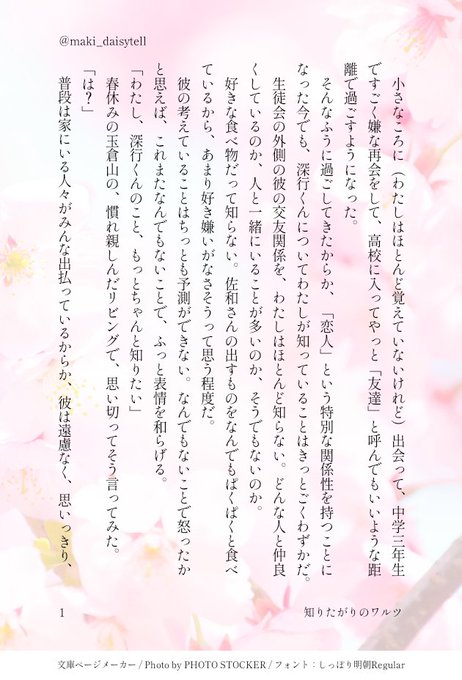 @maki_daisytell
小さなころに（わたしはほとんど覚えていないけれど）出会って、中学三年生
ですごく嫌な再会をして、高校に入ってやっと「友達」と呼んでもいいような距
離で過ごすようになった。
そんなふうに過ごしてきたからか、「恋人」という特別な関係性を持つことに
なった今でも、深行くんについてわたしが知っていることはきっとごくわずかだ。
生徒会の外側の彼の交友関係を、わたしはほとんど知らない。どんな人と仲良
くしているのか、人と一緒にいることが多いのか、そうでもないのか。
好きな食べ物だって知らない。佐和さんの出すものをなんでもぱくぱくと食べ
ているから、あまり好き嫌いがなさそうって思う程度だ。
彼の考えていることはちっとも予測ができない。なんでもないことで怒ったか
と思えば、これまたなんでもないことで、ふっと表情を和らげる。
「わたし、深行くんのこと、もっとちゃんと知りたい」
春休みの玉倉山の、慣れ親しんだリビングで、思い切ってそう言ってみた。
「は？」
普段は家にいる人々がみんな出払っているからか、彼は遠慮なく、思いっきり、
知りたがりのワルツ
1
文庫ページメーカー / Photo by PHOTO STOCKER / フォント：しっぽり明朝Regular